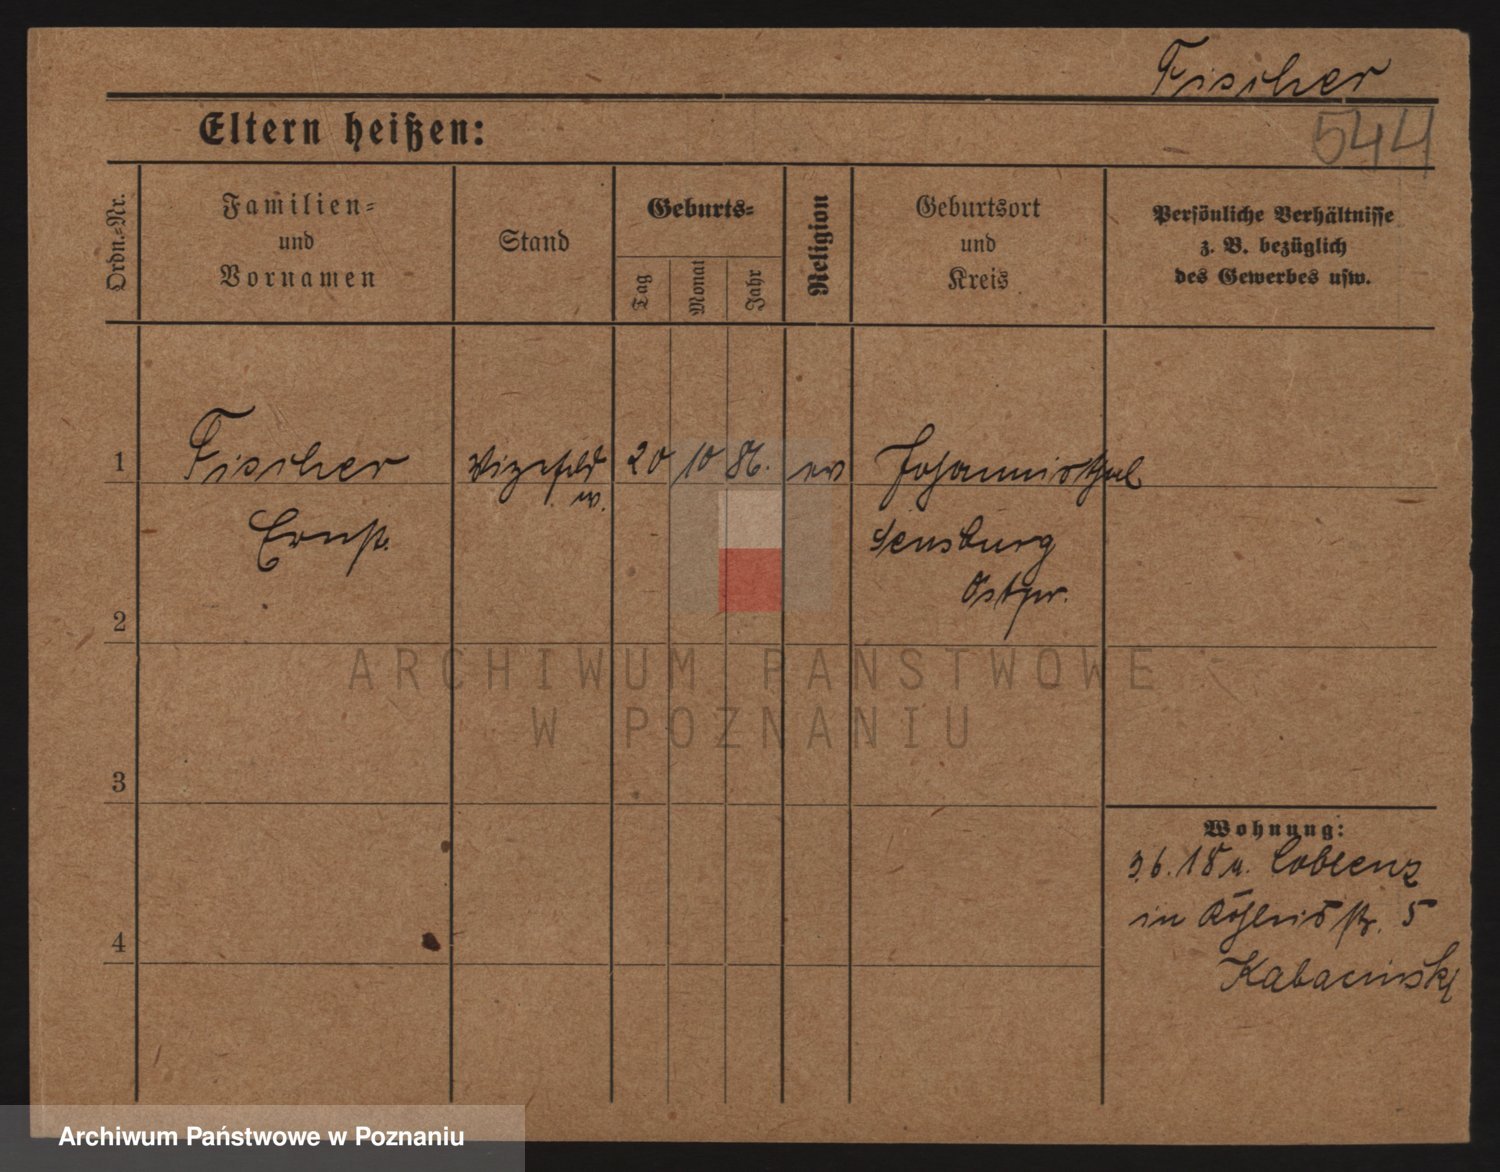 Fischer
544
Eltern heißen:
Ordn.-Nr.
Familien-
und
Vornamen
Stand
Geburts-
Tag
Monat
Jahr
Religion
Geburtsort
und
Kreis
Persönliche Verhältnisse
z. B. bezüglich
des Gewerbes usw.
1
Fischer
Vizefeld
w.
20
10
86.
ev
Johannisthal
Ernst.
Sensburg
Ostpr.
2
ARCHIWUM PAŃSTWOWE
W POZNANIU
3
Wohnung:
3.6.18 v. Coblenz
in str. 5
Kabacinski
4
Archiwum Państwowe w Poznaniu